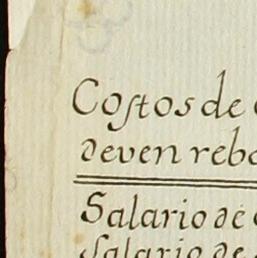 Coſtos de
deven reba
Salario de
Salario de